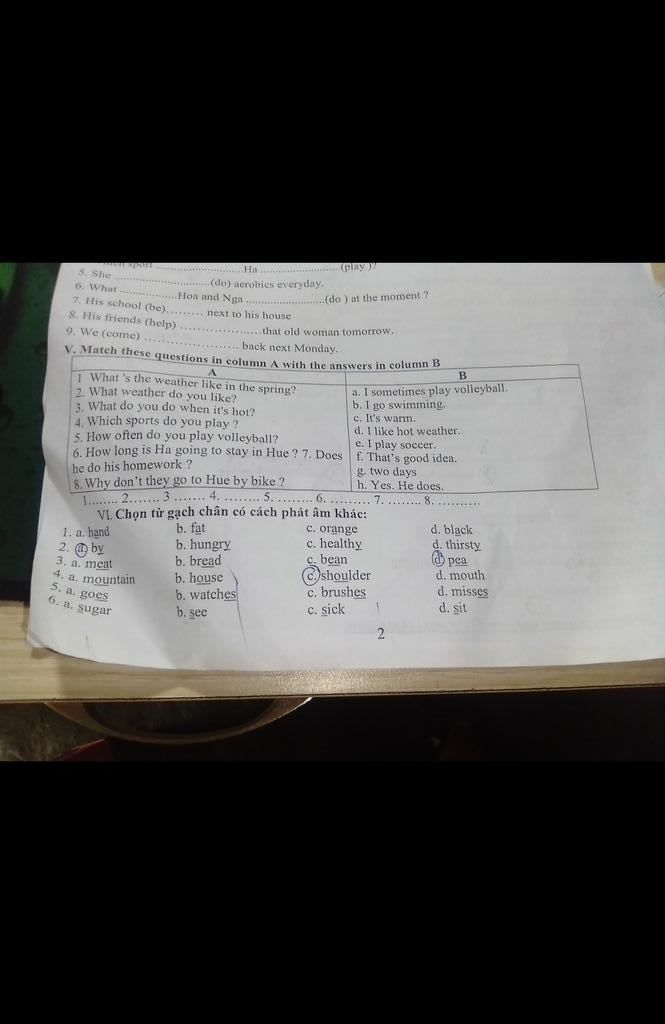 sport ..........................Ha ........................(play )?
5. She ..............................(do) aerobics everyday.
6. What ..................Hoa and Nga ........................(do ) at the moment ?
7. His school (be)......... next to his house
8. His friends (help) .....................that old woman tomorrow.
9. We (come) ........................ back next Monday.
V. Match these questions in column A with the answers in column B
A
1 What 's the weather like in the spring?
2. What weather do you like?
3. What do you do when it's hot?
4. Which sports do you play ?
5. How often do you play volleyball?
6. How long is Ha going to stay in Hue ? 7. Does
he do his homework ?
8. Why don't they go to Hue by bike ?
B
a. I sometimes play volleyball.
b. I go swimming.
c. It's warm.
d. I like hot weather.
e. I play soccer.
f. That's good idea.
g. two days
h. Yes. He does.
1....... 2....... 3 ....... 4. ........ 5. ......... 6. ......... 7. ......... 8. ..........
VI. Chọn từ gạch chân có cách phát âm khác:
1. a. hand b. fat c. orange d. black
2. a. by b. hungry c. healthy d. thirsty
3. a. meat b. bread c. bean d. pea
4. a. mountain b. house c. shoulder d. mouth
5. a. goes b. watches c. brushes d. misses
6. a. sugar b. see c. sick d. sit
2